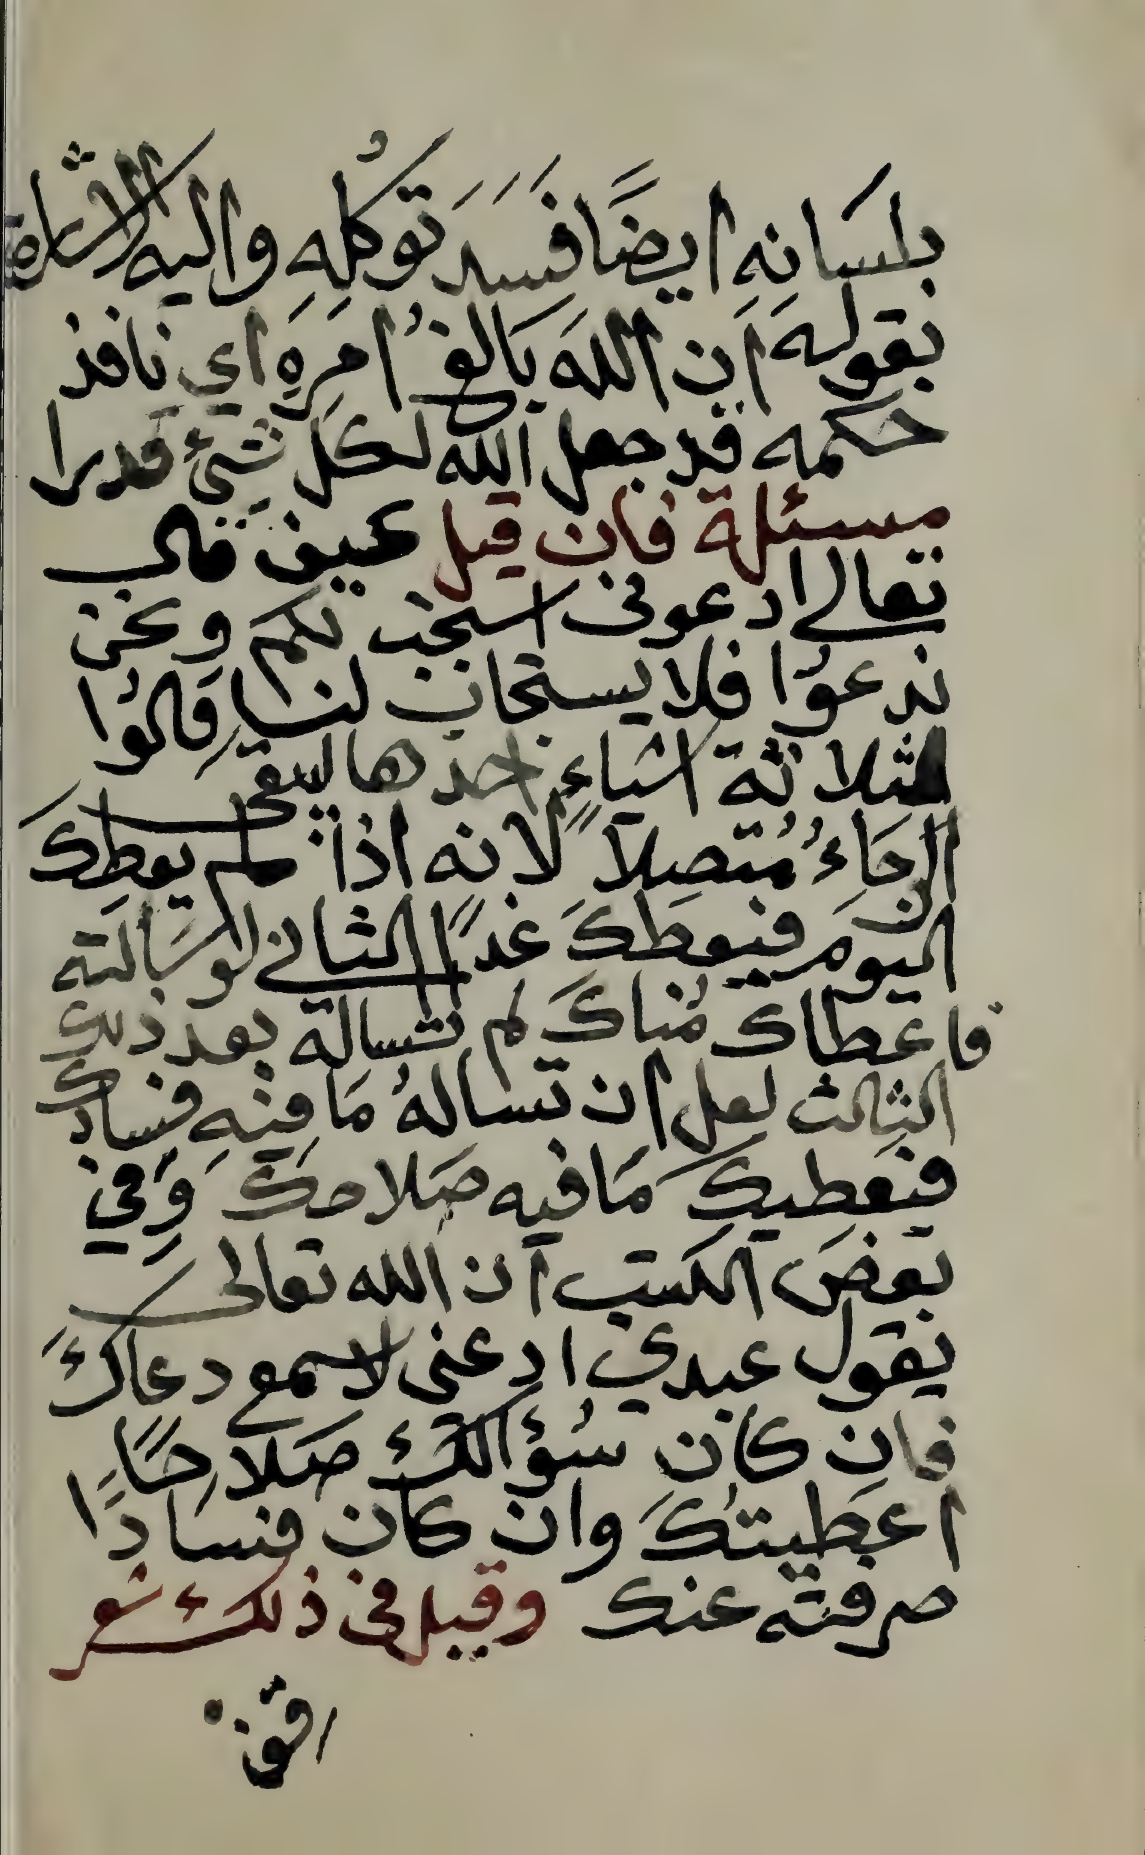 بلسانه ايضًا فَسَدَ توكُله واليه الاشارة
بقوله ان اللهَ بَالغُ امرِهِ اي نافذ
حكمه قد جعل الله لكل شيئ قدرا
مسئلة فان قيل كيف قال
تعالى ادعونى استجب لكم ونحن
ندعوُا فلا يستجاب لنا قالوُا
لثلاثة اشياءٍ احدها ليبقى
الرجاءُ مُتصلاً لانه اذا لم يعطك
اليوم فيعطكَ غدًا الثانى لو سَالته
فاعطاك مُناكَ لم تساله بعد ذلك
الثالث لعل ان تسالهُ مَا فيهِ فسادك
فيعطيك مَا فيه صَلاحك وَفي
بعض الكتب ان الله تعالى
يقول عبدي ادعنى لاسمع دعاكَ
فان كان سُؤالك صَلاحًا
اعطيتكَ وان كان فسادًا
صرفته عنك وقيل فى ذلك شعر